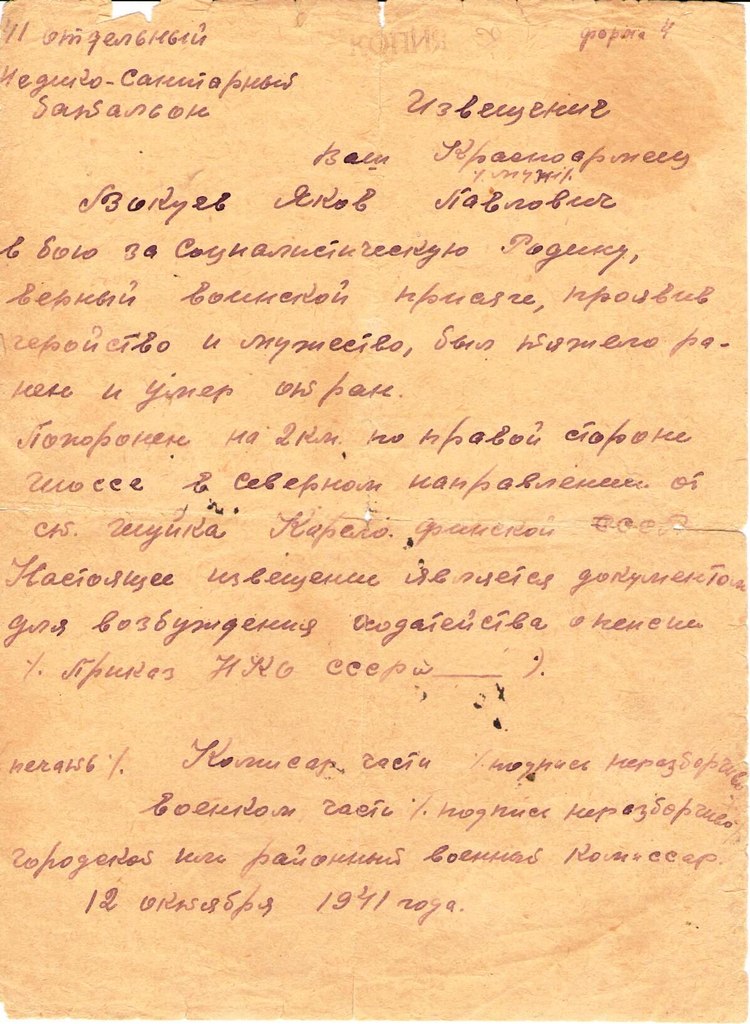 41 отдельный форма 4
Медико-Санитарный
батальон Извещение
Ваш Красноармеец
% муж %
Вокуев Яков Павлович
в бою за социалистическую Родину,
верный воинской присяге, проявив
геройство и мужество, был тяжело ра-
нен и умер от ран.
Похоронен на 2 км. по правой стороне
шоссе в северном направлении от
ст. Шуйка Карело. финской СССР
Настоящее извещение является документом
для возбуждения ходатейства о пенсии
% Приказ НКО СССР № ___ ).
печать %. Комисар части % подпись неразборчиво
военком части % подпись неразборчиво
городской или районный военный комиссар.
12 октября 1941 года.